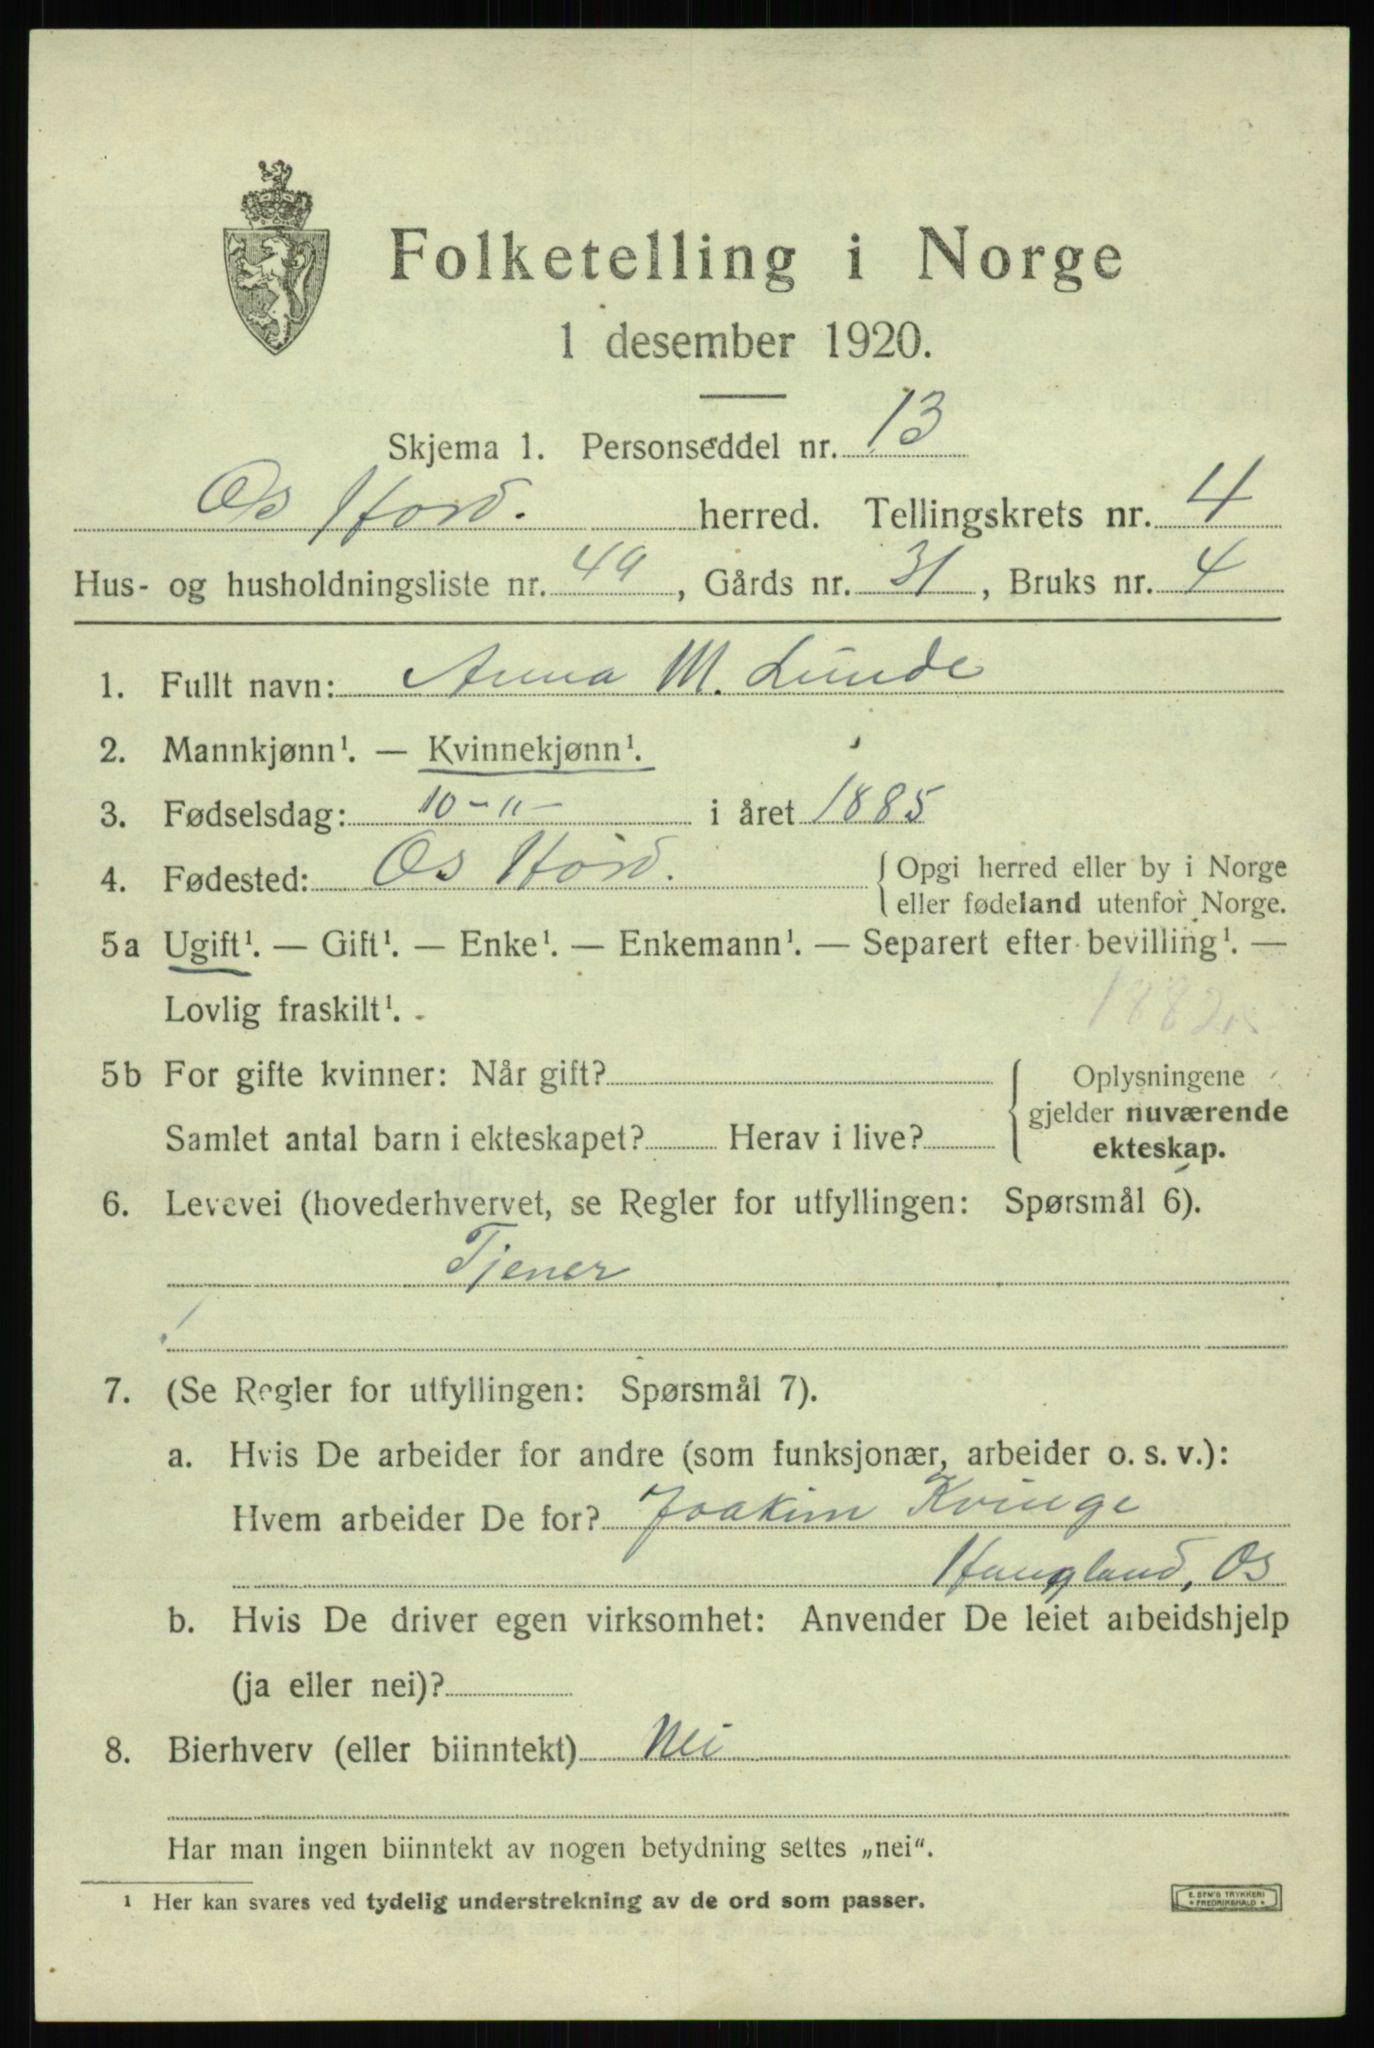 Folketelling i Norge
1 desember 1920.
Skjema 1. Personseddel nr. 13
Os Hord. herred. Tellingskrets nr. 4
Hus- og husholdningsliste nr. 49, Gårds nr. 31, Bruks nr. 4
1. Fullt navn: Anna M. Lunde
2. Mannkjønn¹. — Kvinnekjønn¹.
3. Fødselsdag: 10-11- i året 1885
4. Fødested: Os Hord. Opgi herred eller by i Norge
eller fødeland utenfor Norge.
5a Ugift¹. — Gift¹. — Enke¹. — Enkemann¹. — Separert efter bevilling¹. —
Lovlig fraskilt¹.
5b For gifte kvinner: Når gift? Oplysningene
gjelder nuværende
Samlet antal barn i ekteskapet? Herav i live?
ekteskap.
6. Levevei (hovederhvervet, se Regler for utfyllingen: Spørsmål 6).
Tjener
7. (Se Regler for utfyllingen: Spørsmål 7).
a. Hvis De arbeider for andre (som funksjonær, arbeider o. s. v.):
Hvem arbeider De for? Joakim Kvinge
Haugland, Os
b. Hvis De driver egen virksomhet: Anvender De leiet arbeidshjelp
(ja eller nei)?
8. Bierhverv (eller biinntekt) Nei
Har man ingen biinntekt av nogen betydning settes „nei“.
¹ Her kan svares ved tydelig understrekning av de ord som passer.
E. SEM'S TRYKKERI
FREDRIKSHALD